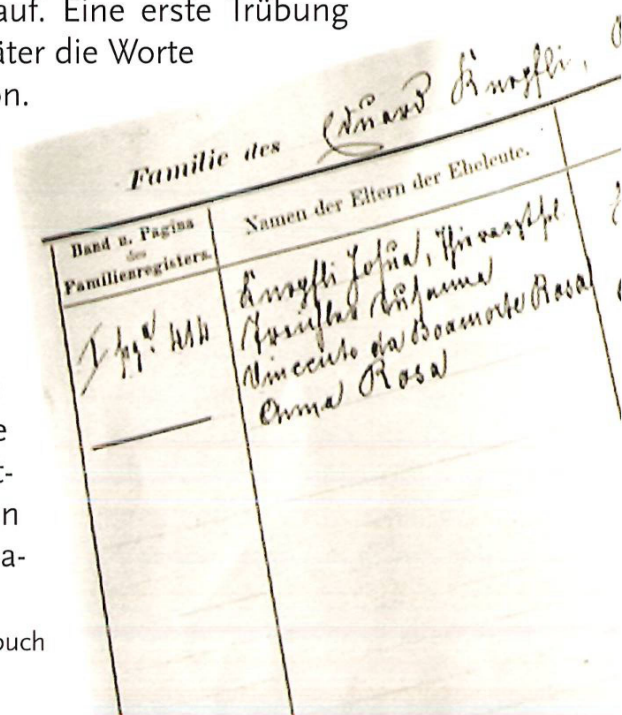 auf. Eine erste Trübung
äter die Worte
n.
Familie des Eduard Knopfli,
Band u. Pagina
des
Familienregisters.
Namen der Eltern der Eheleute.
Knopfli Josua,
I pag. 414
Susanna
Vincento da Boamorte Rosa
Anna Rosa
e
t-
n
a-
ouch